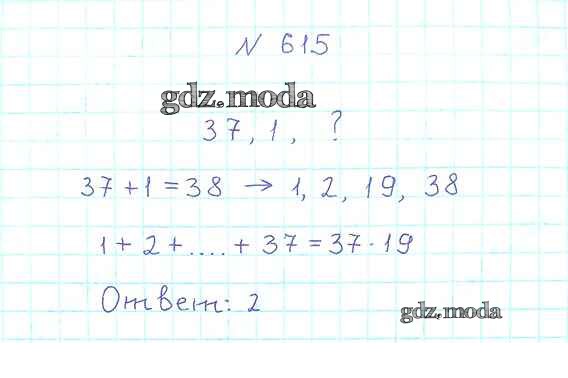 N 615
gdz.moda
37, 1, ?
37 + 1 = 38 → 1, 2, 19, 38
1 + 2 + .... + 37 = 37 · 19
Ответ: 2
gdz.moda